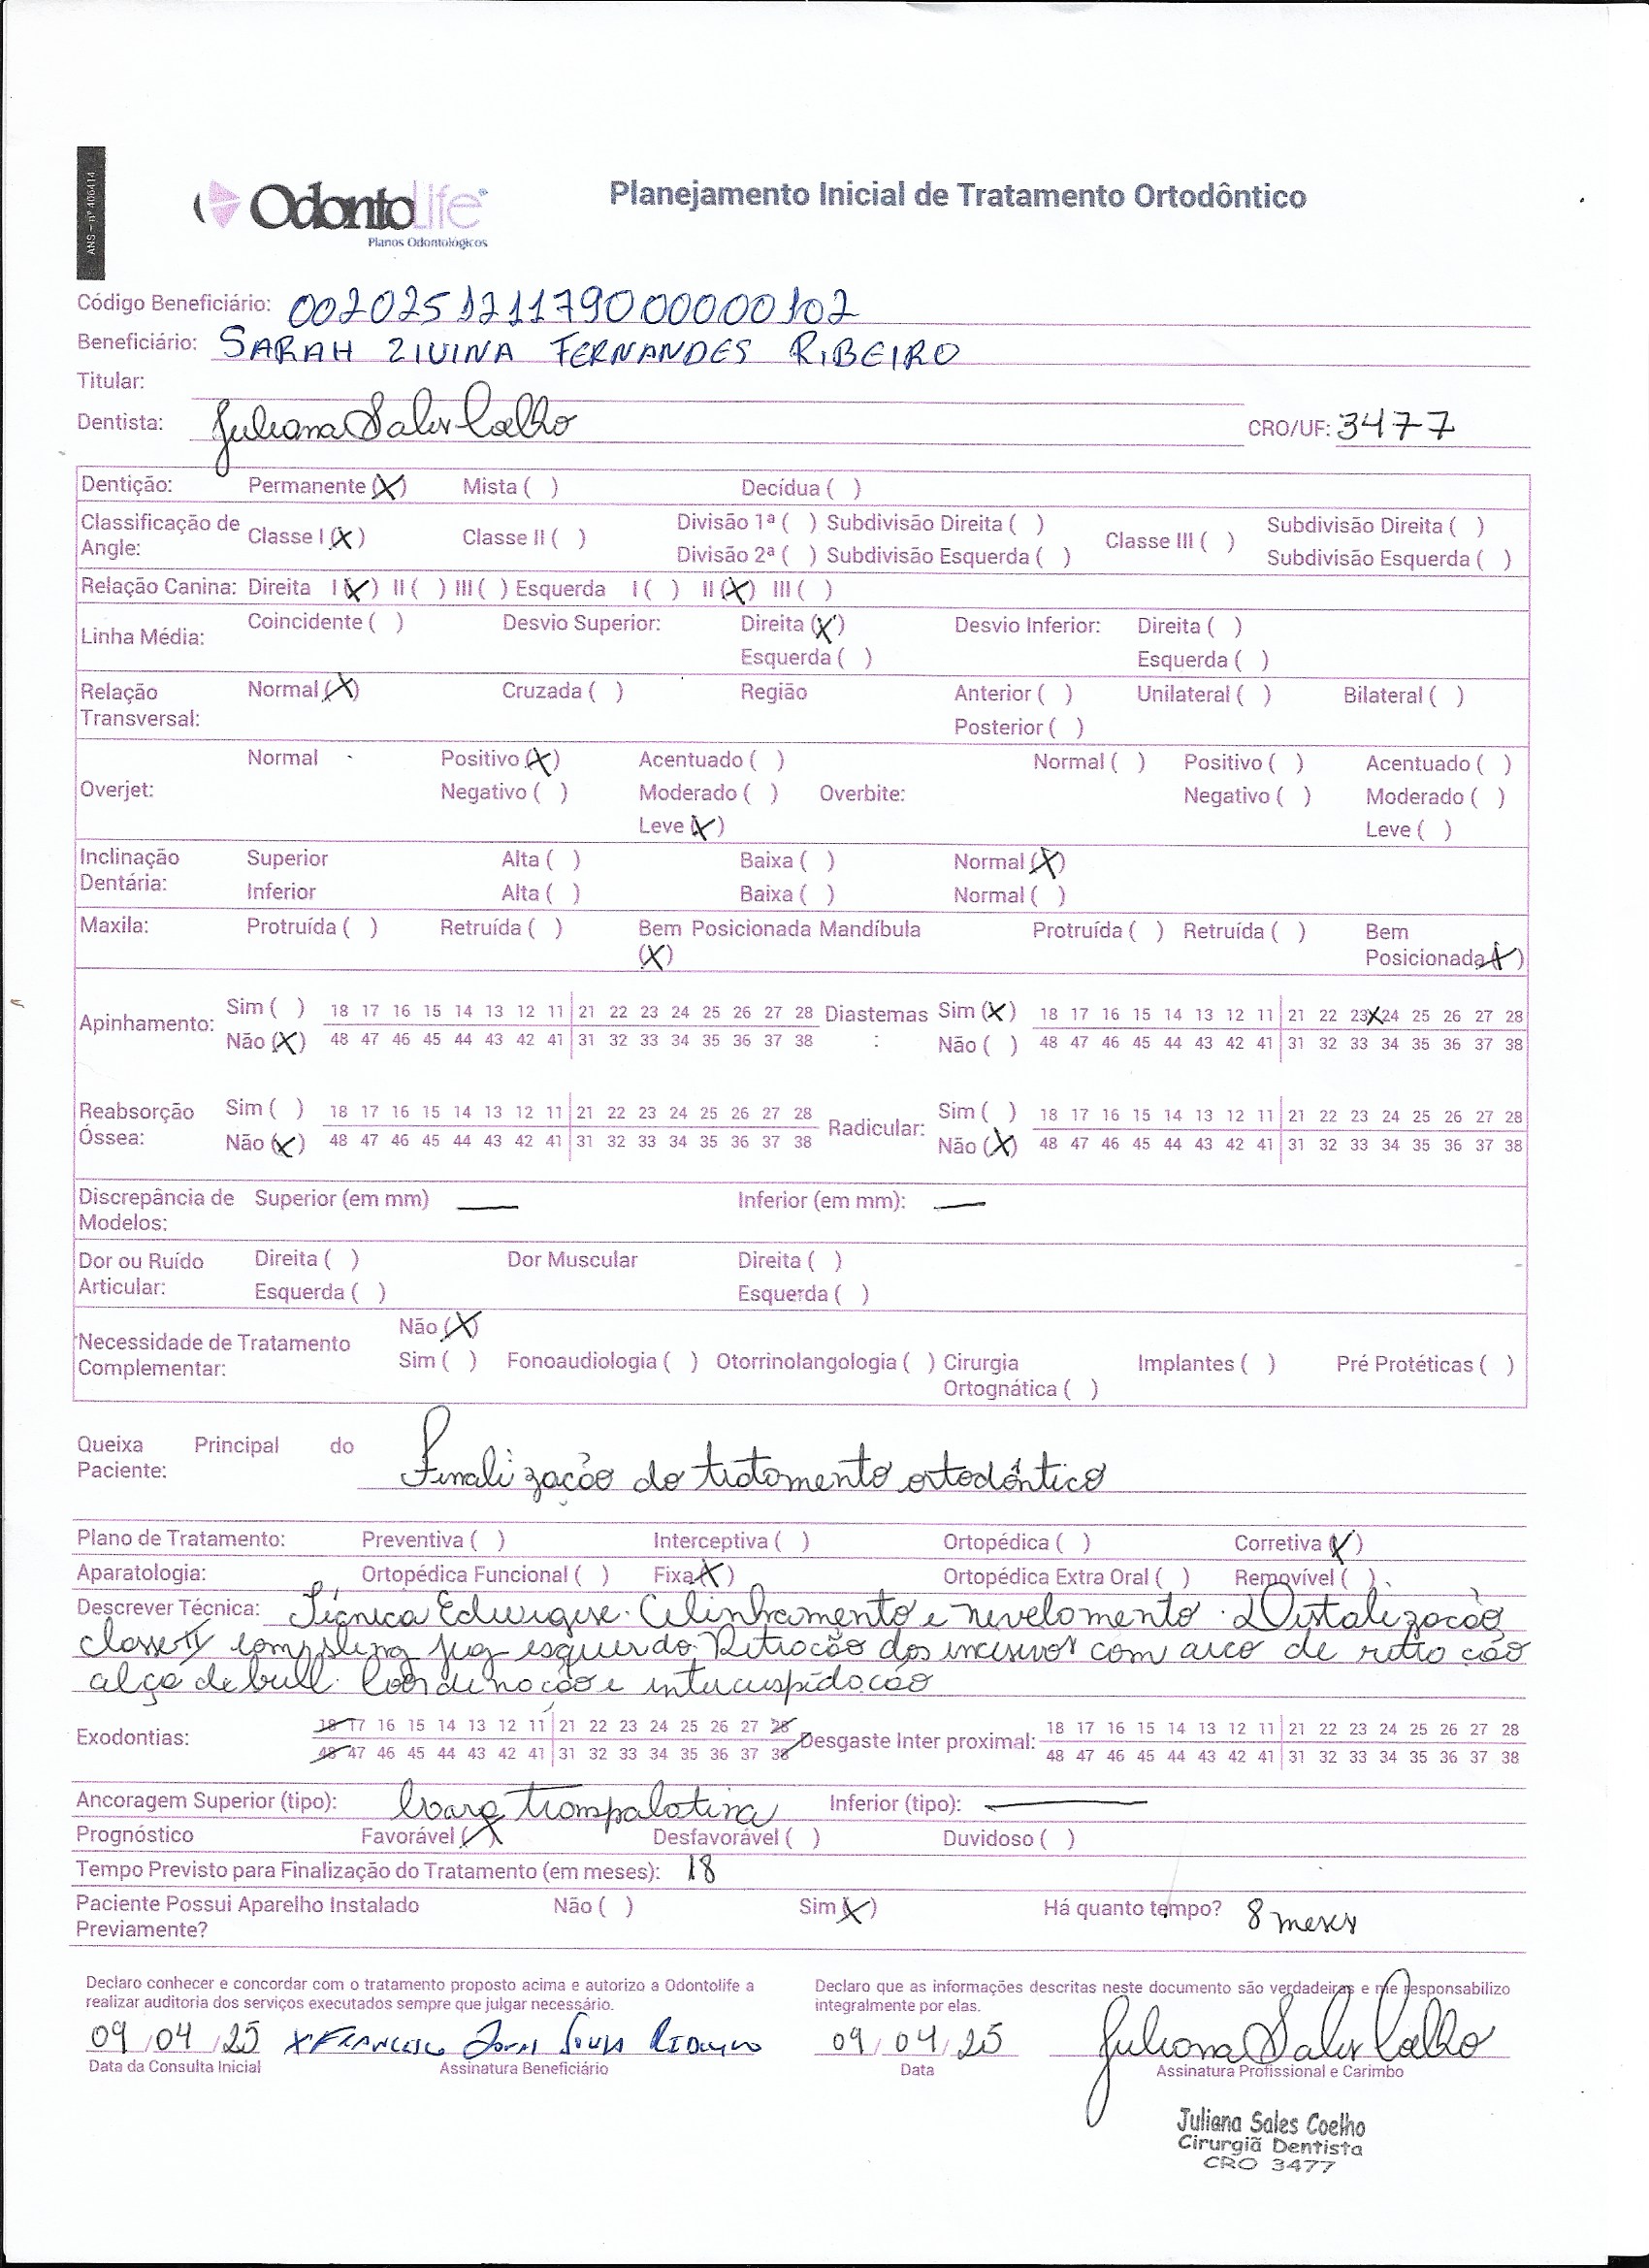 ANS - nº 406414
OdontoLife®
Planos Odontológicos
Planejamento Inicial de Tratamento Ortodôntico
Código Beneficiário: 00202512111790000000102
Beneficiário: SARAH ZIVINA FERNANDES RIBEIRO
Titular:
Dentista: Juliana Sales Coelho CRO/UF: 3477
Dentição: Permanente (X) Mista ( ) Decídua ( )
Classificação de Angle: Classe I (X) Classe II ( ) Divisão 1ª ( ) Subdivisão Direita ( ) Classe III ( ) Subdivisão Direita ( )
Divisão 2ª ( ) Subdivisão Esquerda ( ) Subdivisão Esquerda ( )
Relação Canina: Direita I (X) II ( ) III ( ) Esquerda I ( ) II (X) III ( )
Linha Média: Coincidente ( ) Desvio Superior: Direita (X) Desvio Inferior: Direita ( )
Esquerda ( ) Esquerda ( )
Relação Transversal: Normal (X) Cruzada ( ) Região Anterior ( ) Unilateral ( ) Bilateral ( )
Posterior ( )
Overjet: Normal Positivo (X) Acentuado ( ) Normal ( ) Positivo ( ) Acentuado ( )
Negativo ( ) Moderado ( ) Overbite: Negativo ( ) Moderado ( )
Leve (X) Leve ( )
Inclinação Dentária: Superior Alta ( ) Baixa ( ) Normal (X)
Inferior Alta ( ) Baixa ( ) Normal ( )
Maxila: Protruída ( ) Retruída ( ) Bem Posicionada (X) Mandíbula Protruída ( ) Retruída ( ) Bem Posicionada (X)
Apinhamento: Sim ( ) 18 17 16 15 14 13 12 11 21 22 23 24 25 26 27 28 Diastemas: Sim (X) 18 17 16 15 14 13 12 11 21 22 23 X 24 25 26 27 28
Não (X) 48 47 46 45 44 43 42 41 31 32 33 34 35 36 37 38 Não ( ) 48 47 46 45 44 43 42 41 31 32 33 34 35 36 37 38
Reabsorção Óssea: Sim ( ) 18 17 16 15 14 13 12 11 21 22 23 24 25 26 27 28 Radicular: Sim ( ) 18 17 16 15 14 13 12 11 21 22 23 24 25 26 27 28
Não (X) 48 47 46 45 44 43 42 41 31 32 33 34 35 36 37 38 Não (X) 48 47 46 45 44 43 42 41 31 32 33 34 35 36 37 38
Discrepância de Modelos: Superior (em mm) — Inferior (em mm): —
Dor ou Ruído Articular: Direita ( ) Dor Muscular Direita ( )
Esquerda ( ) Esquerda ( )
Necessidade de Tratamento Complementar: Não (X)
Sim ( ) Fonoaudiologia ( ) Otorrinolangologia ( ) Cirurgia Ortognática ( ) Implantes ( ) Pré Protéticas ( )
Queixa Principal do Paciente: Finalização do tratamento ortodôntico
Plano de Tratamento: Preventiva ( ) Interceptiva ( ) Ortopédica ( ) Corretiva (X)
Aparatologia: Ortopédica Funcional ( ) Fixa (X) Ortopédica Extra Oral ( ) Removível ( )
Descrever Técnica: Técnica Edwigse. Alinhamento e nivelamento. Distalização
classe II com sling jug esquerdo. Retração dos incisivos com arco de retração
alça de bull. Coordenação e intercuspidação
Exodontias: 18 17 16 15 14 13 12 11 21 22 23 24 25 26 27 28 Desgaste Inter proximal: 18 17 16 15 14 13 12 11 21 22 23 24 25 26 27 28
48 47 46 45 44 43 42 41 31 32 33 34 35 36 37 38 48 47 46 45 44 43 42 41 31 32 33 34 35 36 37 38
Ancoragem Superior (tipo): barra transpalatina Inferior (tipo): —
Prognóstico Favorável (X) Desfavorável ( ) Duvidoso ( )
Tempo Previsto para Finalização do Tratamento (em meses): 18
Paciente Possui Aparelho Instalado Previamente? Não ( ) Sim (X) Há quanto tempo? 8 meses
Declaro conhecer e concordar com o tratamento proposto acima e autorizo a Odontolife a
realizar auditoria dos serviços executados sempre que julgar necessário.
Declaro que as informações descritas neste documento são verdadeiras e me responsabilizo
integralmente por elas.
09/04/25 X Francisco 09/04/25 Juliana Sales Coelho
Data da Consulta Inicial Assinatura Beneficiário Data Assinatura Profissional e Carimbo
Juliana Sales Coelho
Cirurgiã Dentista
CRO 3477